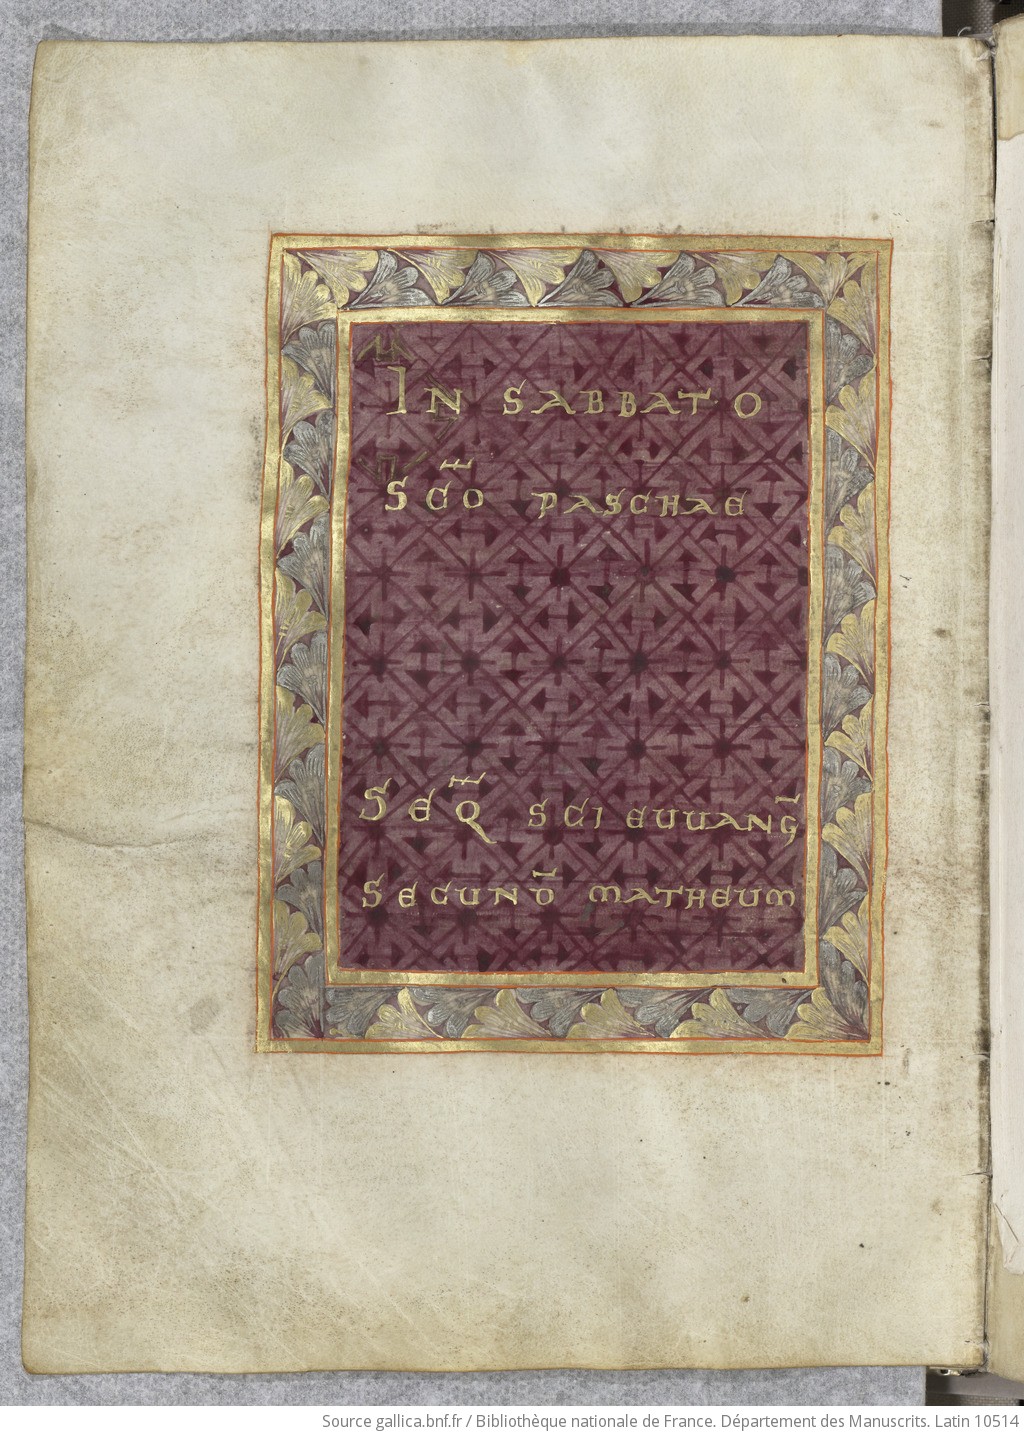 IN SABBATO
SC̄O PASCHAE
SEQ̄ SCI EUUANḠ
SECUND̄ MATHEUM
Source gallica.bnf.fr / Bibliothèque nationale de France. Département des Manuscrits. Latin 10514